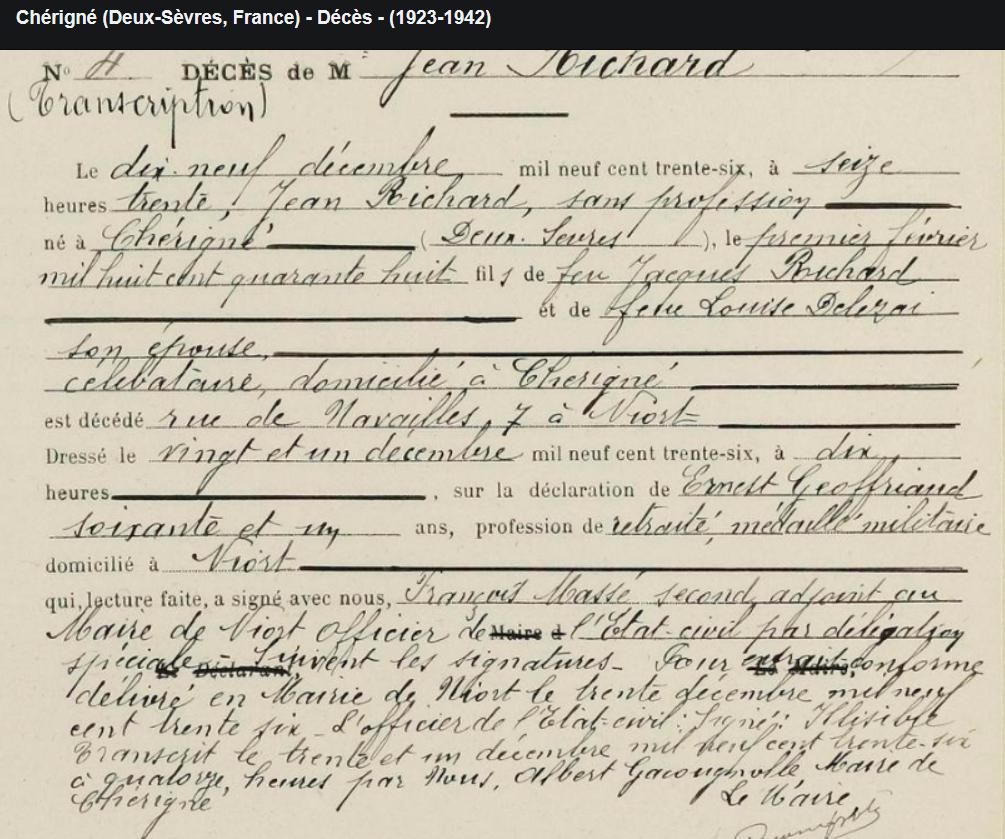 Chérigné (Deux-Sèvres, France) - Décès - (1923-1942)
N° 4 DÉCÈS de M Jean Richard
(Transcription)
Le dix-neuf décembre mil neuf cent trente-six, à seize
heures trente, Jean Richard, sans profession
né à Chérigné (Deux-Sèvres), le premier février
mil huit cent quarante huit fils de feu Jacques Richard
et de feue Louise Delezai
son épouse,
célibataire, domicilié à Chérigné
est décédé rue de Navailles, 7 à Niort
Dressé le vingt et un décembre mil neuf cent trente-six, à dix
heures, sur la déclaration de Ernest Geoffriaud
soixante et un ans, profession de retraité, médaillé militaire
domicilié à Niort
qui, lecture faite, a signé avec nous, François Massé second adjoint au
Maire de Niort Officier de Maire d l'Etat-civil par délégation
spéciale - Le Déclarant, Suivent les signatures - Pour extrait conforme Le Maire,
délivré en Mairie de Niort le trente décembre mil neuf
cent trente six - L'officier de l'Etat-civil : Signé : Illisible
Transcrit le trente et un décembre mil neuf cent trente-six
à quatorze, heures par Nous, Albert Gacougnolle, Maire de
Chérigné Le Maire